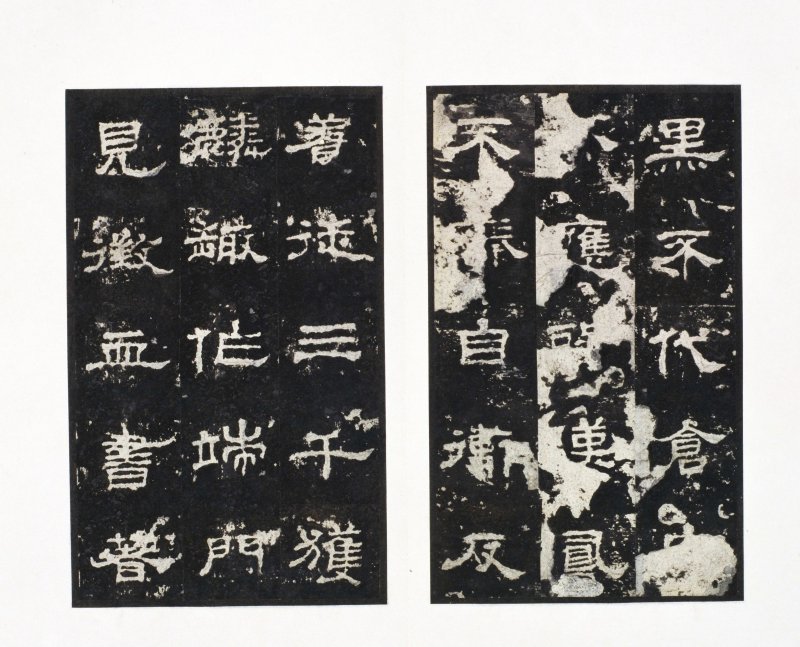 黑不代倉
應聘嘆鳳
不臻自衛反
養徒三千獲
麟趣作端門
見徵血書著